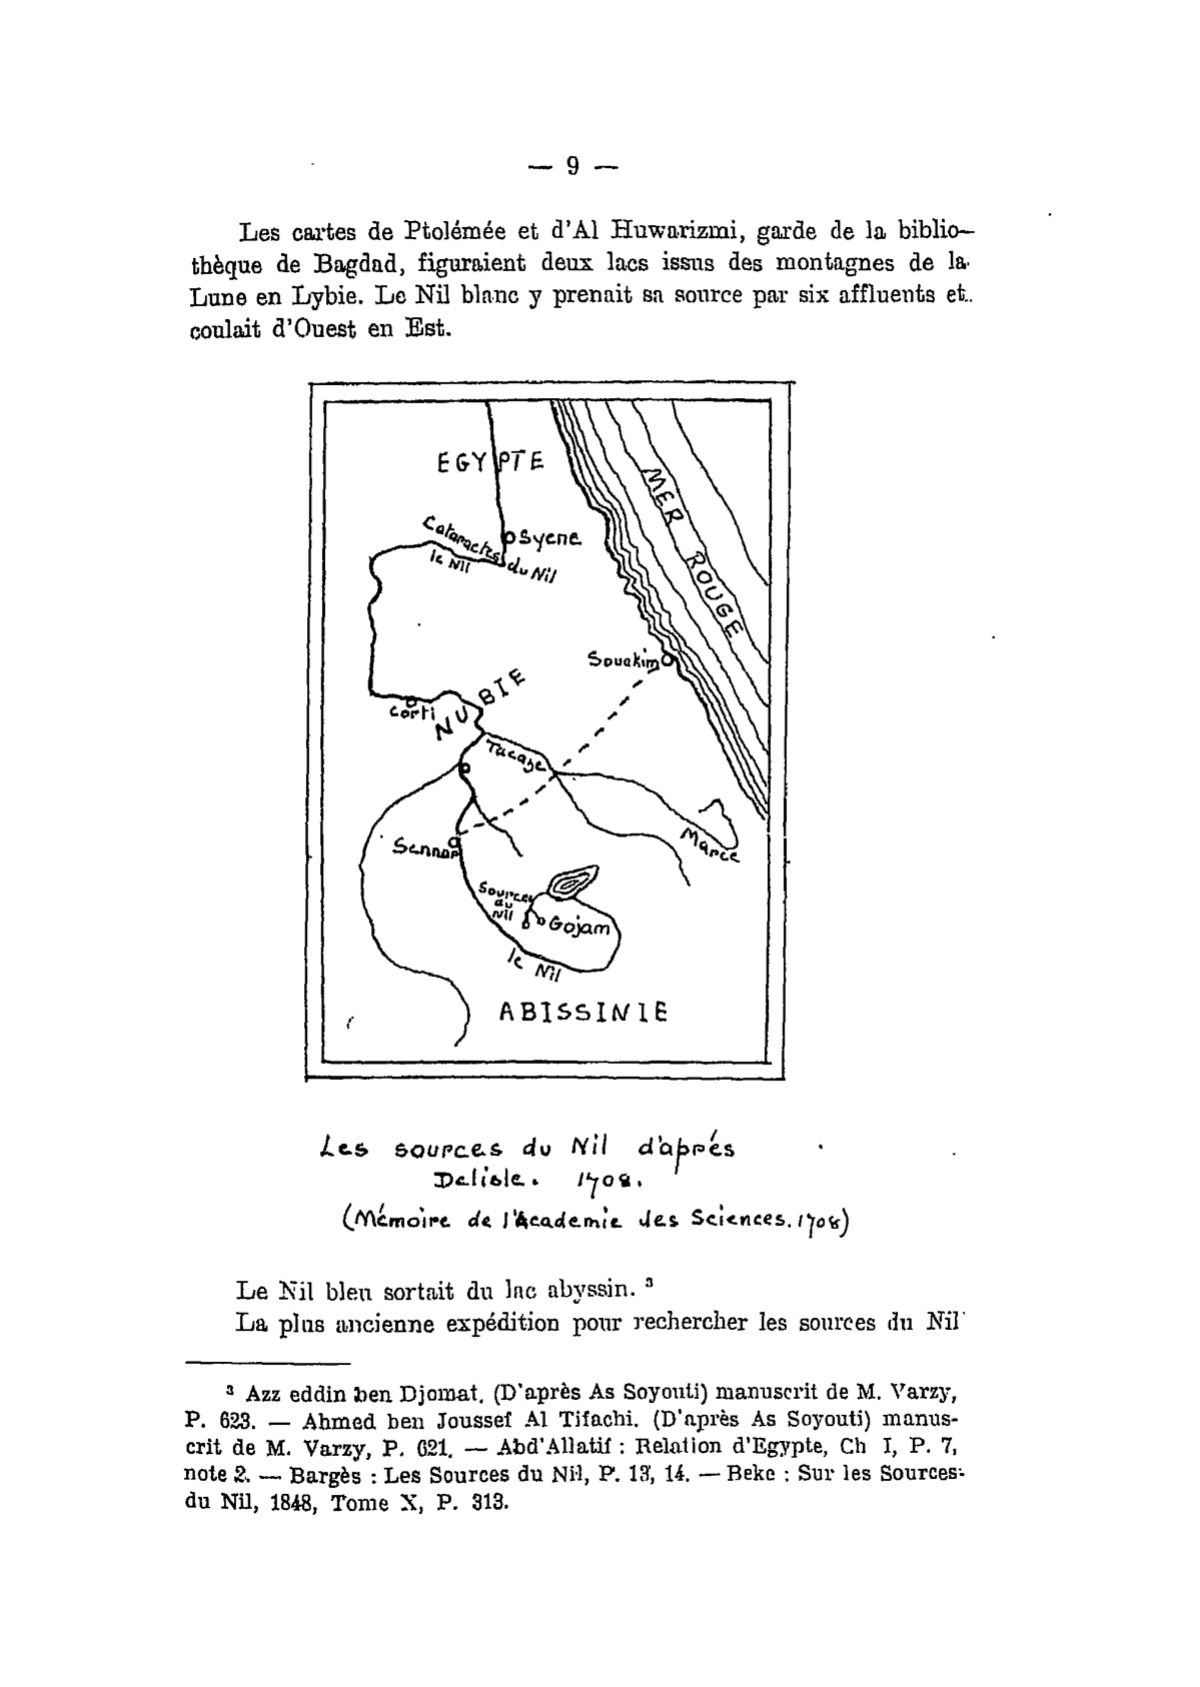 — 9 —
Les cartes de Ptolémée et d'Al Huwarizmi, garde de la biblio-
thèque de Bagdad, figuraient deux lacs issus des montagnes de la
Lune en Lybie. Le Nil blanc y prenait sa source par six affluents et
coulait d'Ouest en Est.
EGYPTE
MER ROUGE
Syene
Cataractes du Nil
le Nil
Souakim
NUBIE
Corti
Tacaze
Sennar
Marce
Sources
du
Nil
Gojam
le Nil
ABISSINIE
Les sources du Nil d'aprés
Delisle. 1708.
(Mémoire de l'Academie des Sciences. 1708)
Le Nil bleu sortait du lac abyssin. ³
La plus ancienne expédition pour rechercher les sources du Nil
³ Azz eddin ben Djomat. (D'après As Soyouti) manuscrit de M. Varzy,
P. 623. — Ahmed ben Joussef Al Tifachi. (D'après As Soyouti) manus-
crit de M. Varzy, P. 621. — Abd'Allatif : Relation d'Egypte, Ch I, P. 7,
note 2. — Bargès : Les Sources du Nil, P. 13, 14. — Beke : Sur les Sources
du Nil, 1848, Tome X, P. 313.